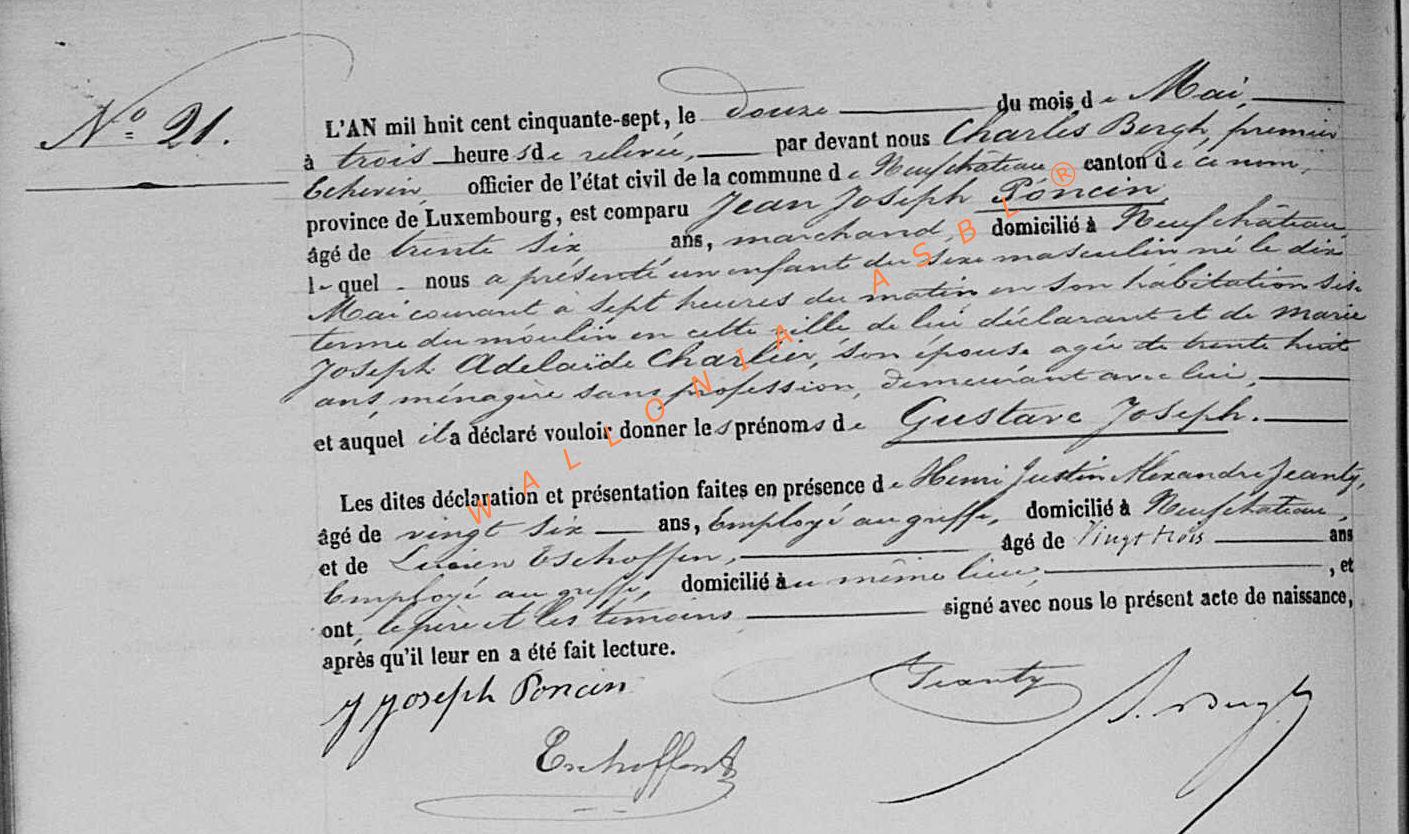 N° 21.
L'AN mil huit cent cinquante-sept, le douze du mois de Mai,
à trois heures de relevée, par devant nous Charles Bergh, premier
Echevin, officier de l'état civil de la commune de Neufchâteau canton de ce nom,
province de Luxembourg, est comparu Jean Joseph Poncin,
âgé de trente six ans, marchand, domicilié à Neufchâteau,
lequel nous a présenté un enfant du sexe masculin né le dix
Mai courant à sept heures du matin en son habitation sise
terme du moulin en cette ville, de lui déclarant et de Marie
Joseph Adelaïde Charlier, son épouse agée de trente huit
ans, ménagère sans profession, demeurant avec lui,
et auquel il a déclaré vouloir donner les prénoms de Gustave Joseph.
Les dites déclaration et présentation faites en présence de Henri Justin Alexandre Jeanty,
âgé de vingt six ans, Employé au greffe, domicilié à Neufchateau,
et de Lucien Eschoffen, âgé de Vingt trois ans
Employé au greffe, domicilié au même lieu, , et
ont, le père et les témoins signé avec nous le présent acte de naissance,
après qu'il leur en a été fait lecture.
J Joseph Poncin
Jeanty
Bergh
Eschoffen
WALLONIA ASBL ®